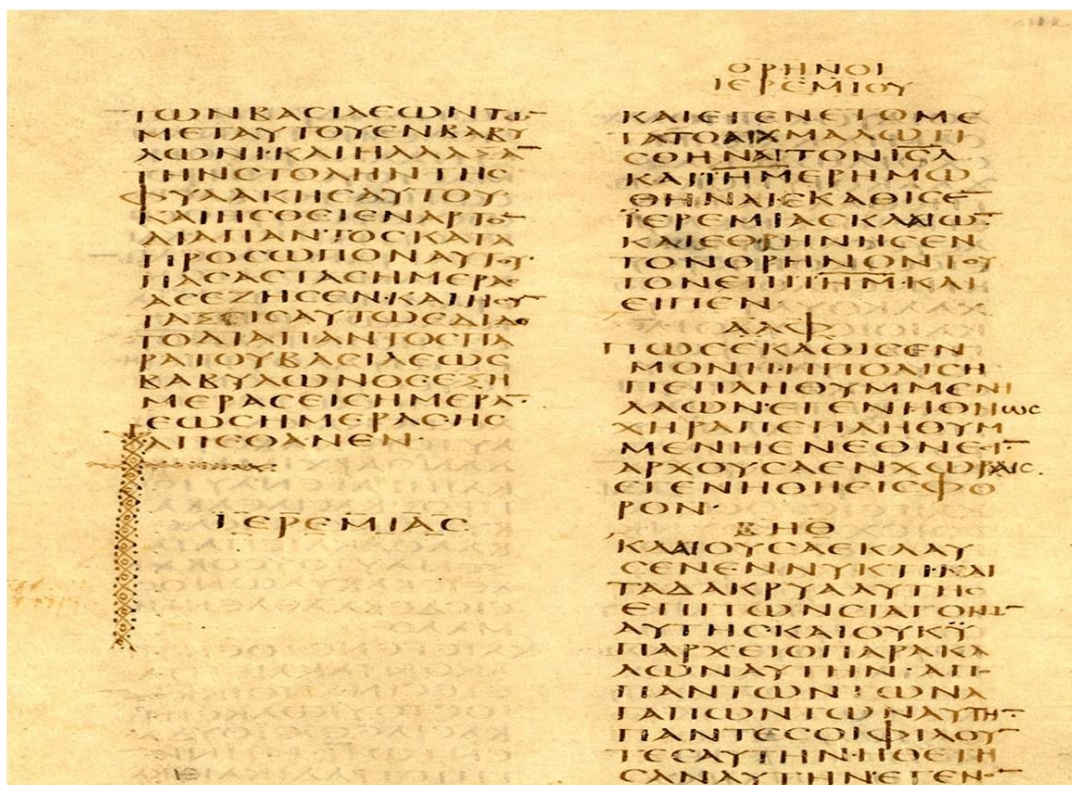 ΤΩΝΒΑϹΙΛΕΩΝΤΩ̅
ΜΕΤΑΥΤΟΥΕΝΒΑΒΥ
ΛΩΝΙ·ΚΑΙΗΛΛΑΞΑ̅
ΤΗΝϹΤΟΛΗΝΤΗϹ
ΦΥΛΑΚΗϹΑΥΤΟΥ·
ΚΑΙΗϹΘΕΙΕΝΑΡΤΟ̅
ΔΙΑΠΑΝΤΟϹΚΑΤΑ
ΠΡΟϹΩΠΟΝΑΥΤΟΥ·
ΠΑϹΑϹΤΑϹΗΜΕΡΑ
ΑϹΕΖΗϹΕΝ·ΚΑΙΗϹΥ̅
ΤΑΞΕΙϹΑΥΤΩΕΔΙΔΟ
ΤΟΔΙΑΠΑΝΤΟϹΠΑ
ΡΑΤΟΥΒΑϹΙΛΕΩϹ
ΒΑΒΥΛΩΝΟϹ·ΕΞΗ
ΜΕΡΑϹΕΙϹΗΜΕΡΑ̅·
ΕΩϹΗΜΕΡΑϹΗϹ
ΑΠΕΘΑΝΕΝ·
ΙΕΡΕΜΙΑϹ
ΘΡΗΝΟΙ
ΙΕΡΕΜΙΟΥ
ΚΑΙΕΓΕΝΕΤΟΜΕ
ΤΑΤΟΑΙΧΜΑΛΩΤΙ
ϹΘΗΝΑΙΤΟΝΙ̅Ϲ̅Λ̅
ΚΑΙΪ̅Η̅Μ̅ΕΡΗΜΩ
ΘΗΝΑΙΕΚΑΘΙϹΕ̅
ΪΕΡΕΜΙΑϹΚΛΑΙΩ̅
ΚΑΙΕΘΡΗΝΗϹΕΝ
ΤΟΝΘΡΗΝΟΝΤΟΥ
ΤΟΝΕΠΙΪ̅Η̅Μ̅·ΚΑΙ
ΕΙΠΕΝ·
ΑΛΦ
ΠΩϹΕΚΑΘΙϹΕΝ
ΜΟΝΗ·ΗΠΟΛΙϹΗ
ΠΕΠΛΗΘΥΜΜΕΝΗ
ΛΑΩΝ·ΕΓΕΝΗΘΗωϲ
ΧΗΡΑΠΕΠΛΗΘΥΜ
ΜΕΝΗΕΝΕΘΝΕϹΙ̅
ΑΡΧΟΥϹΑΕΝΧΩΡΑΙϹ·
ΕΓΕΝΗΘΗΕΙϹΦΟ
ΡΟΝ·
ΒΗΘ
ΚΛΑΙΟΥϹΑΕΚΛΑΥ
ϹΕΝΕΝΝΥΚΤΙ·ΚΑΙ
ΤΑΔΑΚΡΥΑΑΥΤΗϹ
ΕΠΙΤΩΝϹΙΑΓΟΝΩ̅
ΑΥΤΗϹ·ΚΑΙΟΥΚΫ
ΠΑΡΧΕΙΟΠΑΡΑΚΑ
ΛΩΝΑΥΤΗΝ·ΑΠΟ
ΠΑΝΤΩΝΤΩΝΑ
ΓΑΠΩΝΤΩΝΑΥΤΗ̅·
ΠΑΝΤΕϹΟΙΦΙΛΟΥ̅
ΤΕϹΑΥΤΗΝ·ΗΘΕΤΗ
ϹΑΝΑΥΤΗΝ·ΕΓΕΝΟ̅